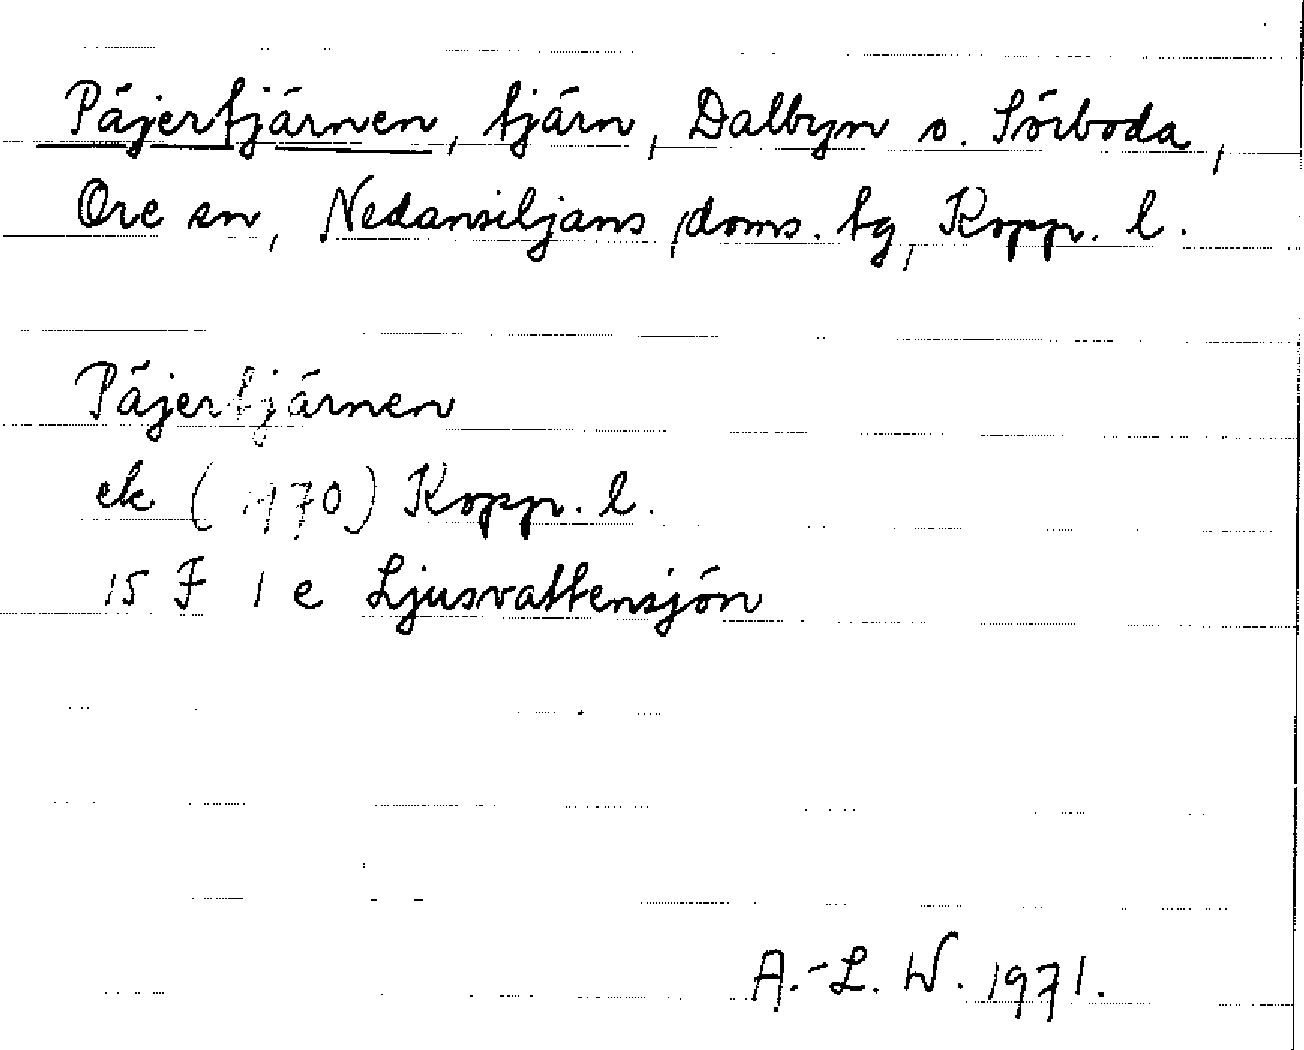 Päjertjärnen, tjärn, Dalbyn o. Sörboda,
Ore sn, Nedansiljans doms. tg, Kopp. l.
Päjertjärnen
ek (1970) Kopp. l.
15 F 1 e Ljusvattensjön
A.-L. W. 1971.